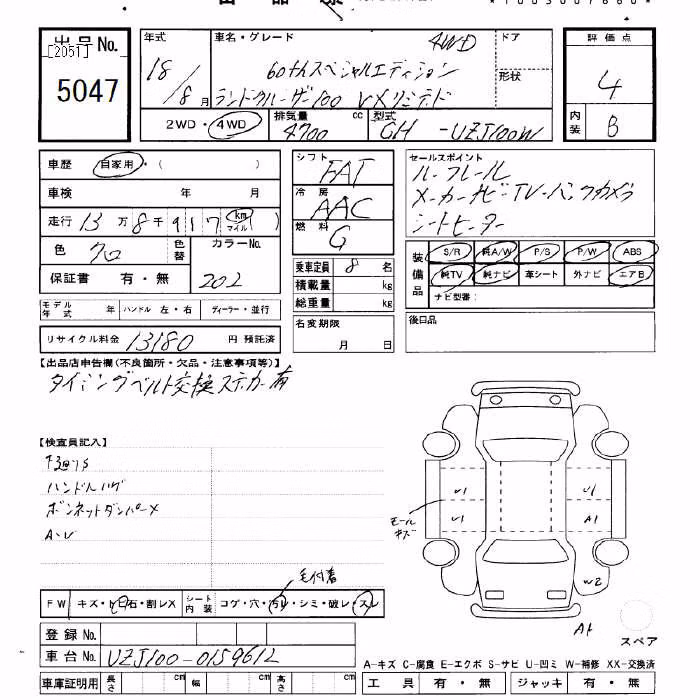 出品No.
[2051]
5047
年式
18/8月
車名・グレード
60thスペシャルエディション
ランドクルーザー100 VXリミテッド
4WD
ドア
形状
評価点
4
内装
B
2WD・4WD
排気量
4700 cc
型式
GH -UZJ100W
車歴 自家用・( )
車検 年 月
走行 13万8千917 km マイル ( )
色 クロ 色替 カラーNo. 202
保証書 有・無
モデル年式 年 ハンドル 左・右 ディーラー・並行
リサイクル料金 13180 円 預託済
シフト FAT
冷房 AAC
燃料 G
乗車定員 8 名
積載量 kg
総重量 kg
名変期限
月 日
セールスポイント
ルーフレール
メーカーナビ-TV-バックカメラ
シートヒーター
装備品
S/R 純A/W P/S P/W ABS
純TV 純ナビ 革シート 外ナビ エアB
ナビ型番:
後日品
【出品店申告欄(不良箇所・欠品・注意事項等)】
タイミングベルト交換ステッカー有
【検査員記入】
ハンドルハゲ
ボンネットダンパーメ
U1 U1
U1 A1
モールキズ
W2
A1
スペア
毛付着
FW キズ・トビ石・割レX シート内装 コゲ・穴・汚レ・シミ・破レ・スレ
登録No.
車台No. UZJ100-0159612
車庫証明用 長さ cm 幅 cm 高さ cm
A-キズ C-腐食 E-エクボ S-サビ U-凹ミ W-補修 XX-交換済
工具 有・無 ジャッキ 有・無